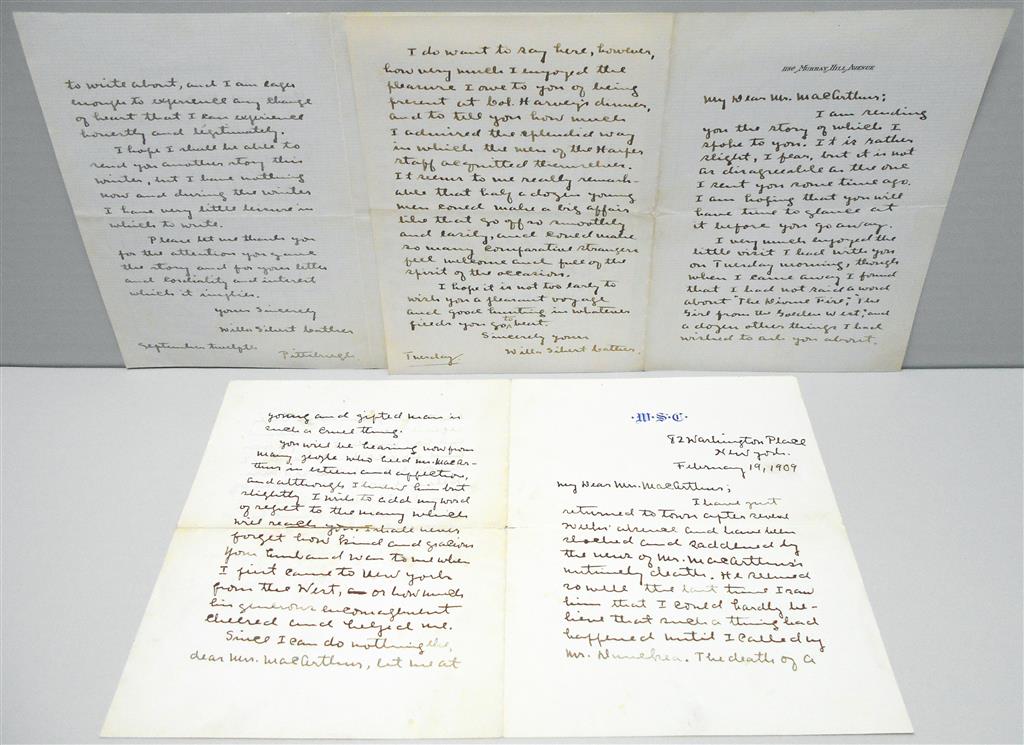 to write about, and I am eager
enough to experience any change
of heart that I can experience
honestly and legitimately.
I hope I shall be able to
send you another story this
winter, but I have nothing
now and during the winter
I have very little leisure in
which to write.
Please let me thank you
for the attention you gave
the story and for your letter
and cordiality and interest
which it implies.
Yours Sincerely
Willa Sibert Cather
September twelfth
Pittsburgh
I do want to say here, however,
how very much I enjoyed the
pleasure I owe to you of being
present at Col. Harvey's dinner,
and to tell you how much
I admired the splendid way
in which the men of the Harper
staff acquitted themselves.
It seems to me really remark-
able that half a dozen young
men could make a big affair
like that go off so smoothly
and easily, and could make
so many comparative strangers
feel welcome and full of the
spirit of the occasion.
I hope it is not too early to
wish you a pleasant voyage
and good hunting in whatever
fields you go to beat.
Sincerely yours
Willa Sibert Cather.
Tuesday
1180 MURRAY HILL AVENUE
My Dear Mr. MacArthur;
I am sending
you the story of which I
spoke to you. It is rather
slight, I fear, but it is not
as disagreeable as the one
I sent you some time ago.
I am hoping that you will
have time to glance at
it before you go away.
I very much enjoyed the
little visit I had with you
on Tuesday morning, though
when I came away I found
that I had not said a word
about "The Divine Fire," "The
Girl from the Golden West," and
a dozen other things I had
wished to ask you about.
young and gifted man is
such a cruel thing.
You will be hearing now from
many people who held Mr. MacAr-
thur in esteem and affection,
and although I knew him but
slightly I wish to add my word
of regret to the many which
will reach you. I shall never
forget how kind and gracious
your husband was to me when
I first came to New York
from the West, or how much
his generous encouragement
cheered and helped me.
Since I can do nothing else,
dear Mrs. MacArthur, let me at
·W·S·C·
82 Washington Place
New York.
February 19, 1909
My Dear Mrs. MacArthur;
I have just
returned to town after several
weeks' absence and have been
shocked and saddened by
the news of Mr. MacArthur's
untimely death. He seemed
so well the last time I saw
him that I could hardly be-
lieve that such a thing had
happened until I called up
Mr. Duneka. The death of a